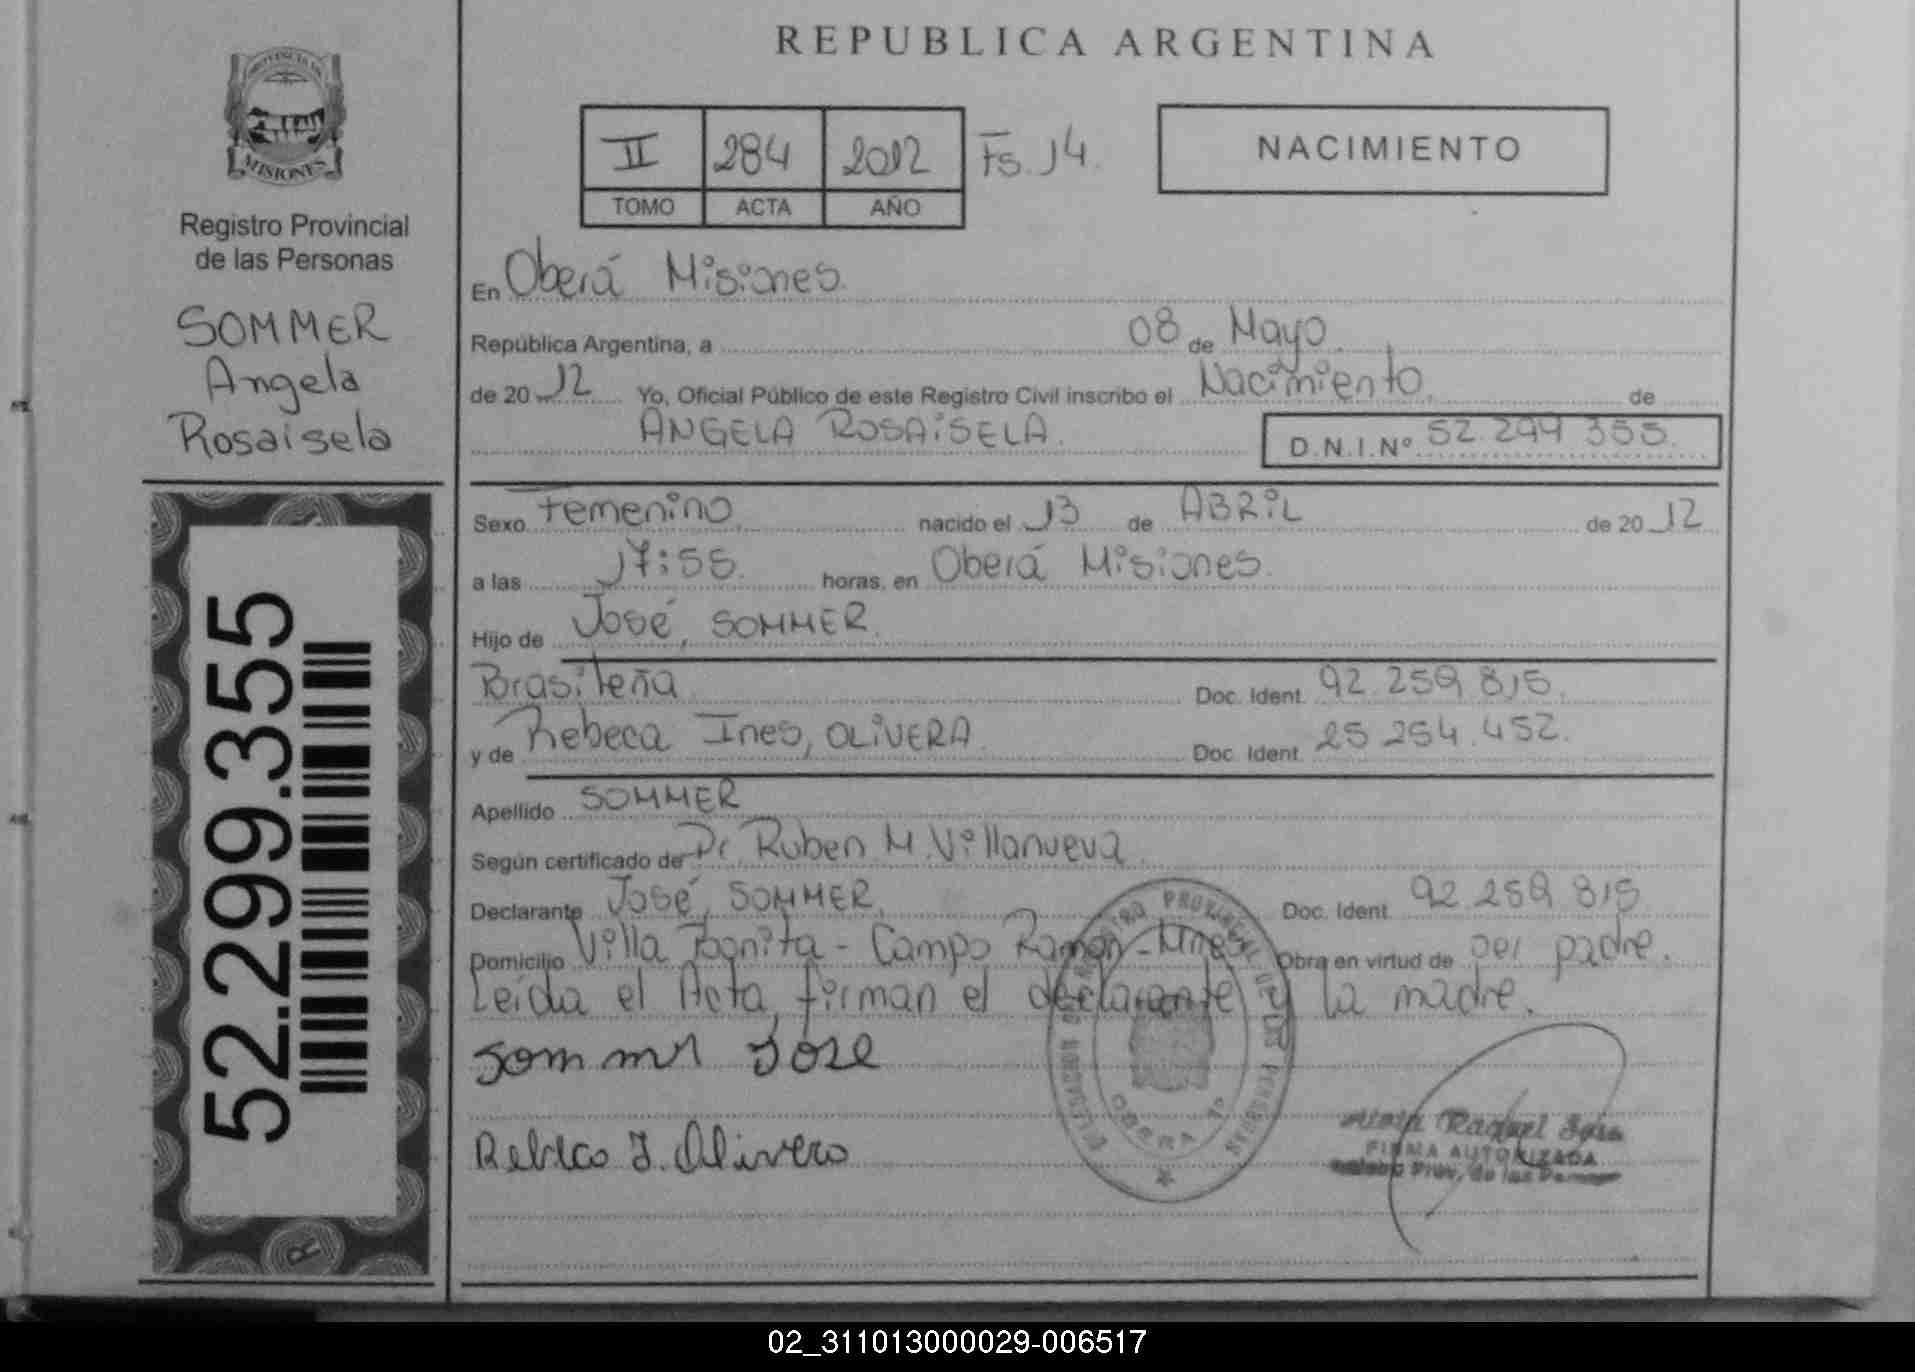 REPUBLICA ARGENTINA
PROVINCIA DE
MISIONES
II 284 2012 Fs. 14.
TOMO ACTA AÑO
NACIMIENTO
Registro Provincial
de las Personas
SOMMER
Angela
Rosaisela
52.299.355
R
En Oberá Misiones.
República Argentina, a 08 de Mayo.
de 20 12 Yo, Oficial Público de este Registro Civil inscribo el Nacimiento. de
ANGELA ROSAISELA. D.N.I.Nº 52.299 355.
Sexo Femenino. nacido el 13 de ABRIL de 20 12
a las 17:55. horas, en Oberá Misiones.
Hijo de José, SOMMER.
Brasileña Doc. Ident. 92.259.815.
y de Rebeca Ines, OLIVERA. Doc. Ident. 25 254.452.
Apellido SOMMER
Según certificado de Dr Ruben M. Villanueva
Declarante José, SOMMER. Doc. Ident. 92.259.815
Domicilio Villa Bonita - Campo Ramón - Mnes Obra en virtud de ser padre.
Leida el Acta, firman el declarante y la madre.
Sommer Jose
Rebeca I. Olivera
REGISTRO PROVINCIAL DE LAS PERSONAS
Raquel
FIRMA AUTORIZADA
02_311013000029-006517